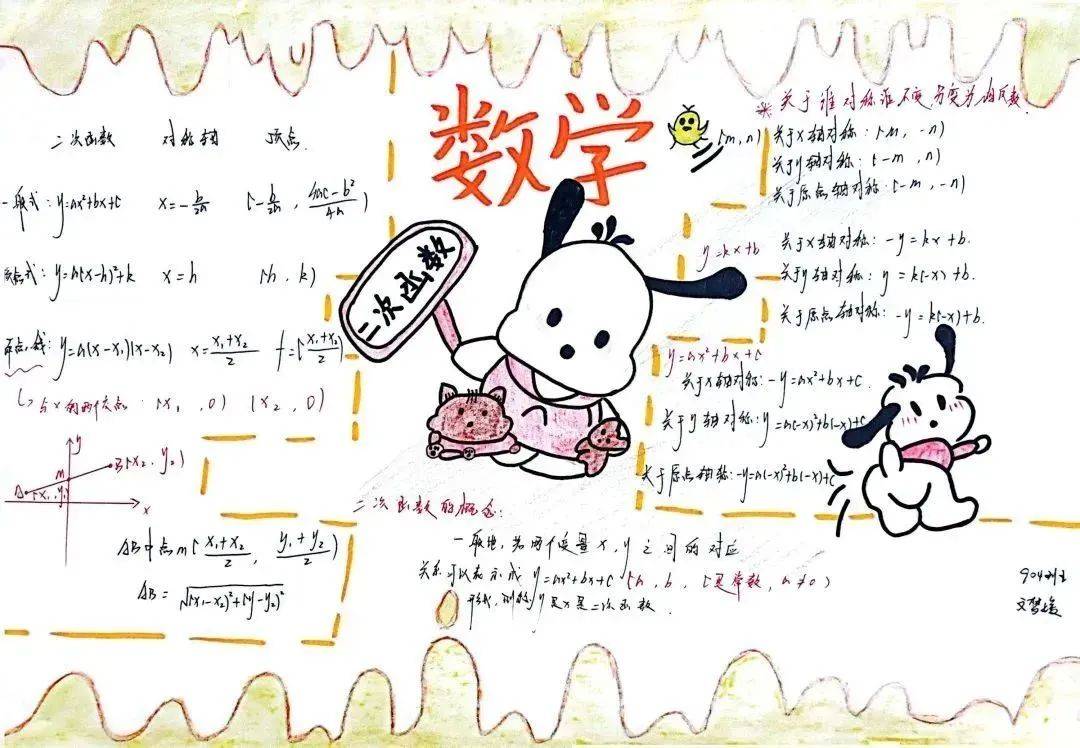 数学
二次函数
二次函数 对称轴 顶点
一般式：y=ax²+bx+c x=-b/2a (-b/2a, 4ac-b²/4a)
顶点式：y=a(x-h)²+k x=h (h, k)
y=a(x-x₁)(x-x₂) x=x₁+x₂/2
与x轴两个交点：(x₁, 0) (x₂, 0)
y
M
B(x₂, y₂)
A(x₁, y₁)
x
AB中点M(x₁+x₂/2, y₁+y₂/2)
AB=√(x₁-x₂)²+(y-y₂)²
*关于谁对称谁不变 另变为相反数
(m, n)
关于x轴对称：(m, -n)
关于y轴对称：(-m, n)
关于原点轴对称：(-m, -n)
y=kx+b
关于x轴对称：-y=kx+b.
关于y轴对称：y=k(-x)+b.
关于原点轴对称：-y=k(-x)+b.
y=ax²+bx+c
关于x轴对称：-y=ax²+bx+c.
关于y轴对称：y=a(-x)²+b(-x)+c
关于原点轴称：-y=a(-x)²+b(-x)+c
二次函数的概念：
一般地，若两个变量x，y之间的对应
关系可以表示成y=ax²+bx+c（a，b，c是常数，a≠0）
形式，则称y是x是二次函数.
904